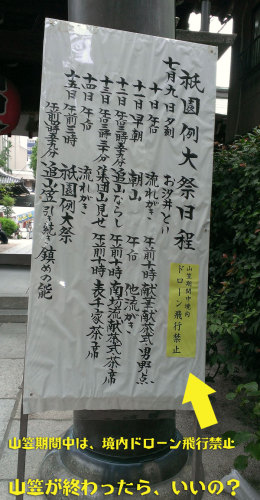 祇園例大祭日程
七月九日夕刻 お汐井とり
十日 午后 流れがき 午前十時 献華献茶式
十一日 早朝 朝山 午后 他流がき
十二日 追山ならし 午前十時 南坊流献茶式茶席
十三日 午后三時三十分 集団山見せ 午前十時 表千家茶席
十四日 午后 流れがき
十五日 午前三時 祇園例大祭
追山笠 引き続き 鎮めの能
山笠期間中境内
ドローン飛行禁止
山笠期間中は、境内ドローン飛行禁止
山笠が終わったら、いいの？